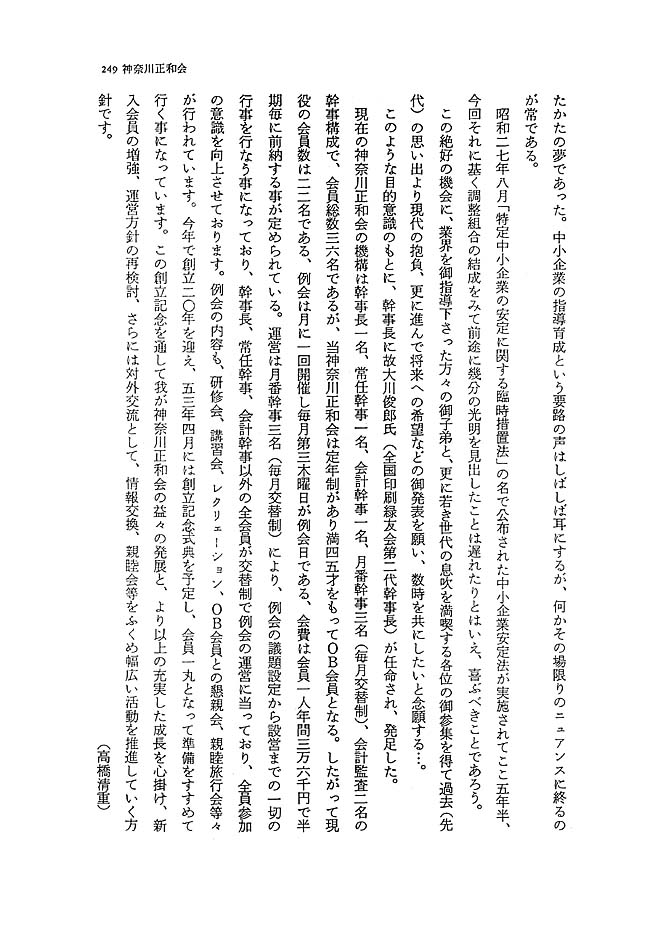 249 神奈川正和会
たかたの夢であった。中小企業の指導育成という要路の声はしばしば耳にするが、何かその場限りのニュアンスに終るの
が常である。
昭和二七年八月「特定中小企業の安定に関する臨時措置法」の名で公布された中小企業安定法が実施されてここ五年半、
今回それに基く調整組合の結成をみて前途に幾分の光明を見出したことは遅れたりとはいえ、喜ぶべきことであろう。
この絶好の機会に、業界を御指導下さった方々の御子弟と、更に若き世代の息吹を満喫する各位の御参集を得て過去（先
代）の思い出より現代の抱負、更に進んで将来への希望などの御発表を願い、数時を共にしたいと念願する…。
このような目的意識のもとに、幹事長に故大川俊郎氏（全国印刷緑友会第二代幹事長）が任命され、発足した。
現在の神奈川正和会の機構は幹事長一名、常任幹事一名、会計幹事一名、月番幹事三名（毎月交替制）、会計監査二名の
幹事構成で、会員総数三六名であるが、当神奈川正和会は定年制があり満四五才をもってＯＢ会員となる。したがって現
役の会員数は二二名である、例会は月に一回開催し毎月第三木曜日が例会日である、会費は会員一人年間三万六千円で半
期毎に前納する事が定められている。運営は月番幹事三名（毎月交替制）により、例会の議題設定から設営までの一切の
行事を行なう事になっており、幹事長、常任幹事、会計幹事以外の全会員が交替制で例会の運営に当っており、全員参加
の意識を向上させております。例会の内容も、研修会、講習会、レクリェーション、ＯＢ会員との懇親会、親睦旅行会等々
が行われています。今年で創立二〇年を迎え、五三年四月には創立記念式典を予定し、会員一丸となって準備をすすめて
行く事になっています。この創立記念を通して我が神奈川正和会の益々の発展と、より以上の充実した成長を心掛け、新
入会員の増強、運営方針の再検討、さらには対外交流として、情報交換、親睦会等をふくめ幅広い活動を推進していく方
針です。
（高橋清重）